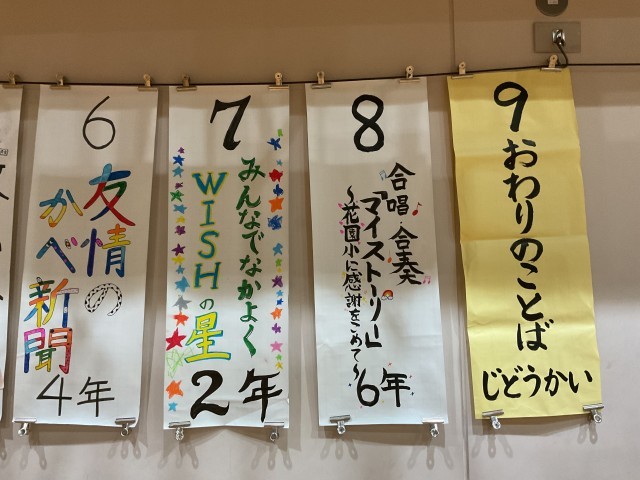 6
友情の
かべ新聞
4年
7
みんなでなかよく
WISHの星
2年
8
合唱・合奏
「マイストーリー」
～花園小に感謝をこめて～
6年
9
おわりのことば
じどうかい